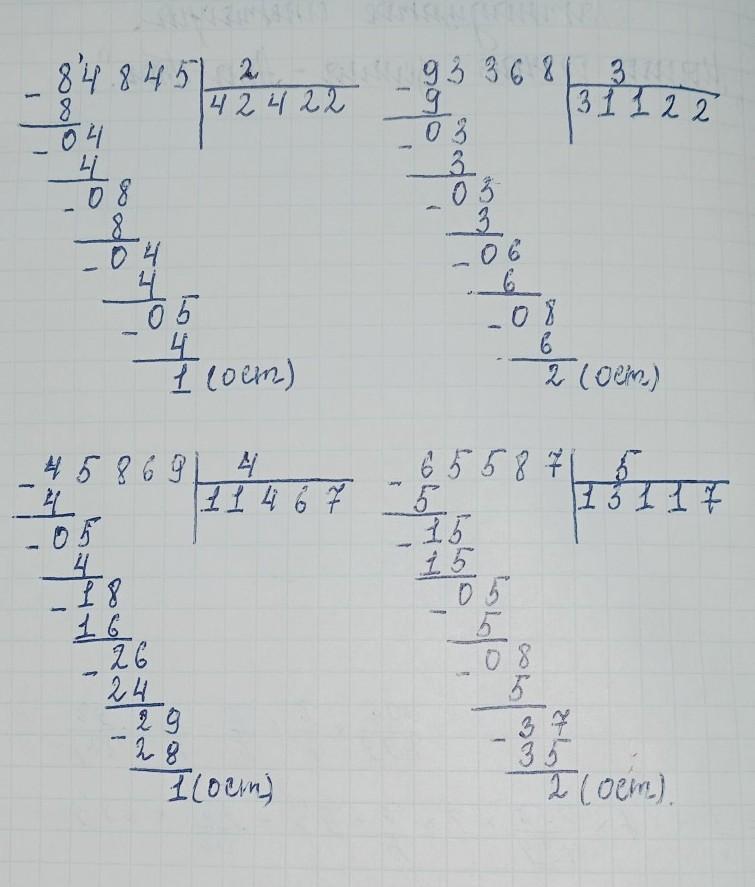 - 84845 2
8 42422
- 04
4
- 08
8
- 04
4
- 05
4
1 (ост)
- 93368 3
9 31122
- 03
3
- 03
3
- 06
6
- 08
6
2 (ост)
- 45869 4
4 11467
- 05
4
- 18
16
- 26
24
- 29
28
1 (ост)
- 65587 5
5 13117
- 15
15
- 05
5
- 08
5
- 37
35
2 (ост).